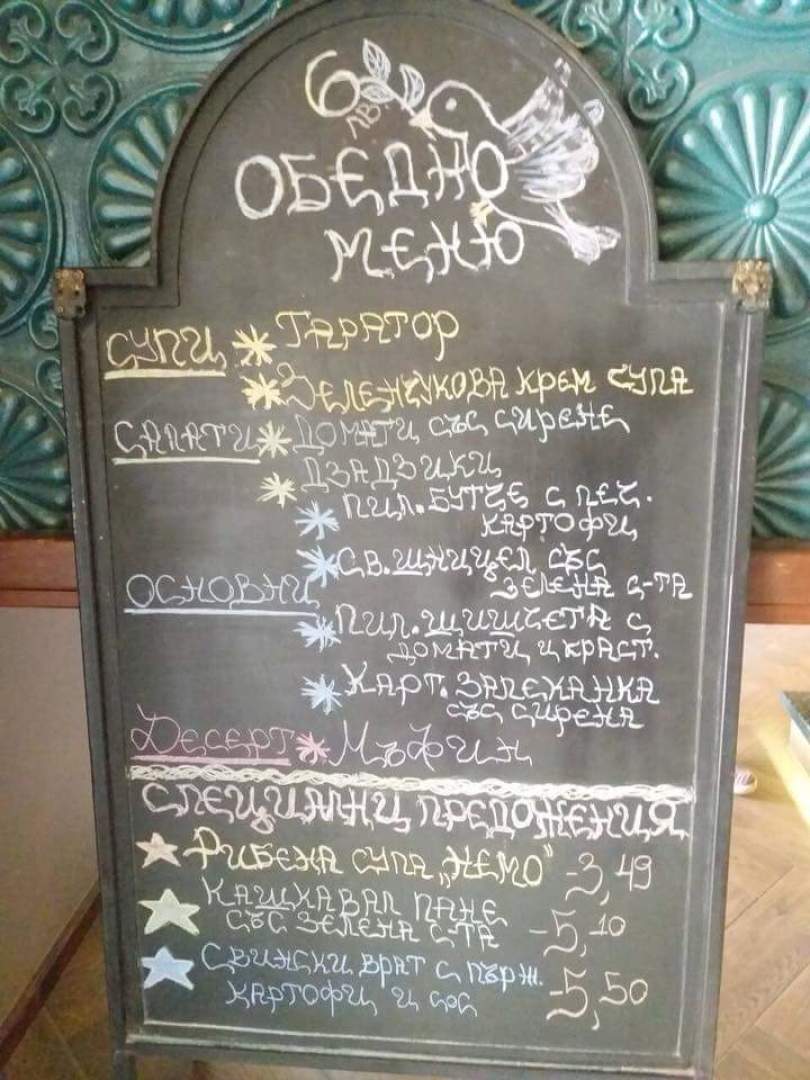 6
лв.
ОБЕДНО
МЕНЮ
СУПИ * ТАРАТОР
* ЗЕЛЕНЧУКОВА КРЕМ СУПА
САЛАТИ * ДОМАТИ СЪС СИРЕНЕ
* ДЗАДЗИКИ
* ПИЛ. БУТЧЕ С ПЕЧ.
КАРТОФИ
* СВ. ШНИЦЕЛ СЪС
ЗЕЛЕНА С-ТА
ОСНОВНИ
* ПИЛ. ШИШЧЕТА С
ДОМАТИ И КРАСТ.
* КАРТ. ЗАПЕКАНКА
СЪС СИРЕНА
ДЕСЕРТ * МЪФИН
СПЕЦИАЛНИ ПРЕДОЖЕНИЯ
РИБЕНА СУПА „НЕМО" - 3,49
КАШКАВАЛ ПАНЕ
СЪС ЗЕЛЕНА С-ТА - 5,10
СВИНСКИ ВРАТ С ПЪРЖ.
КАРТОФИ И СОС - 5,50